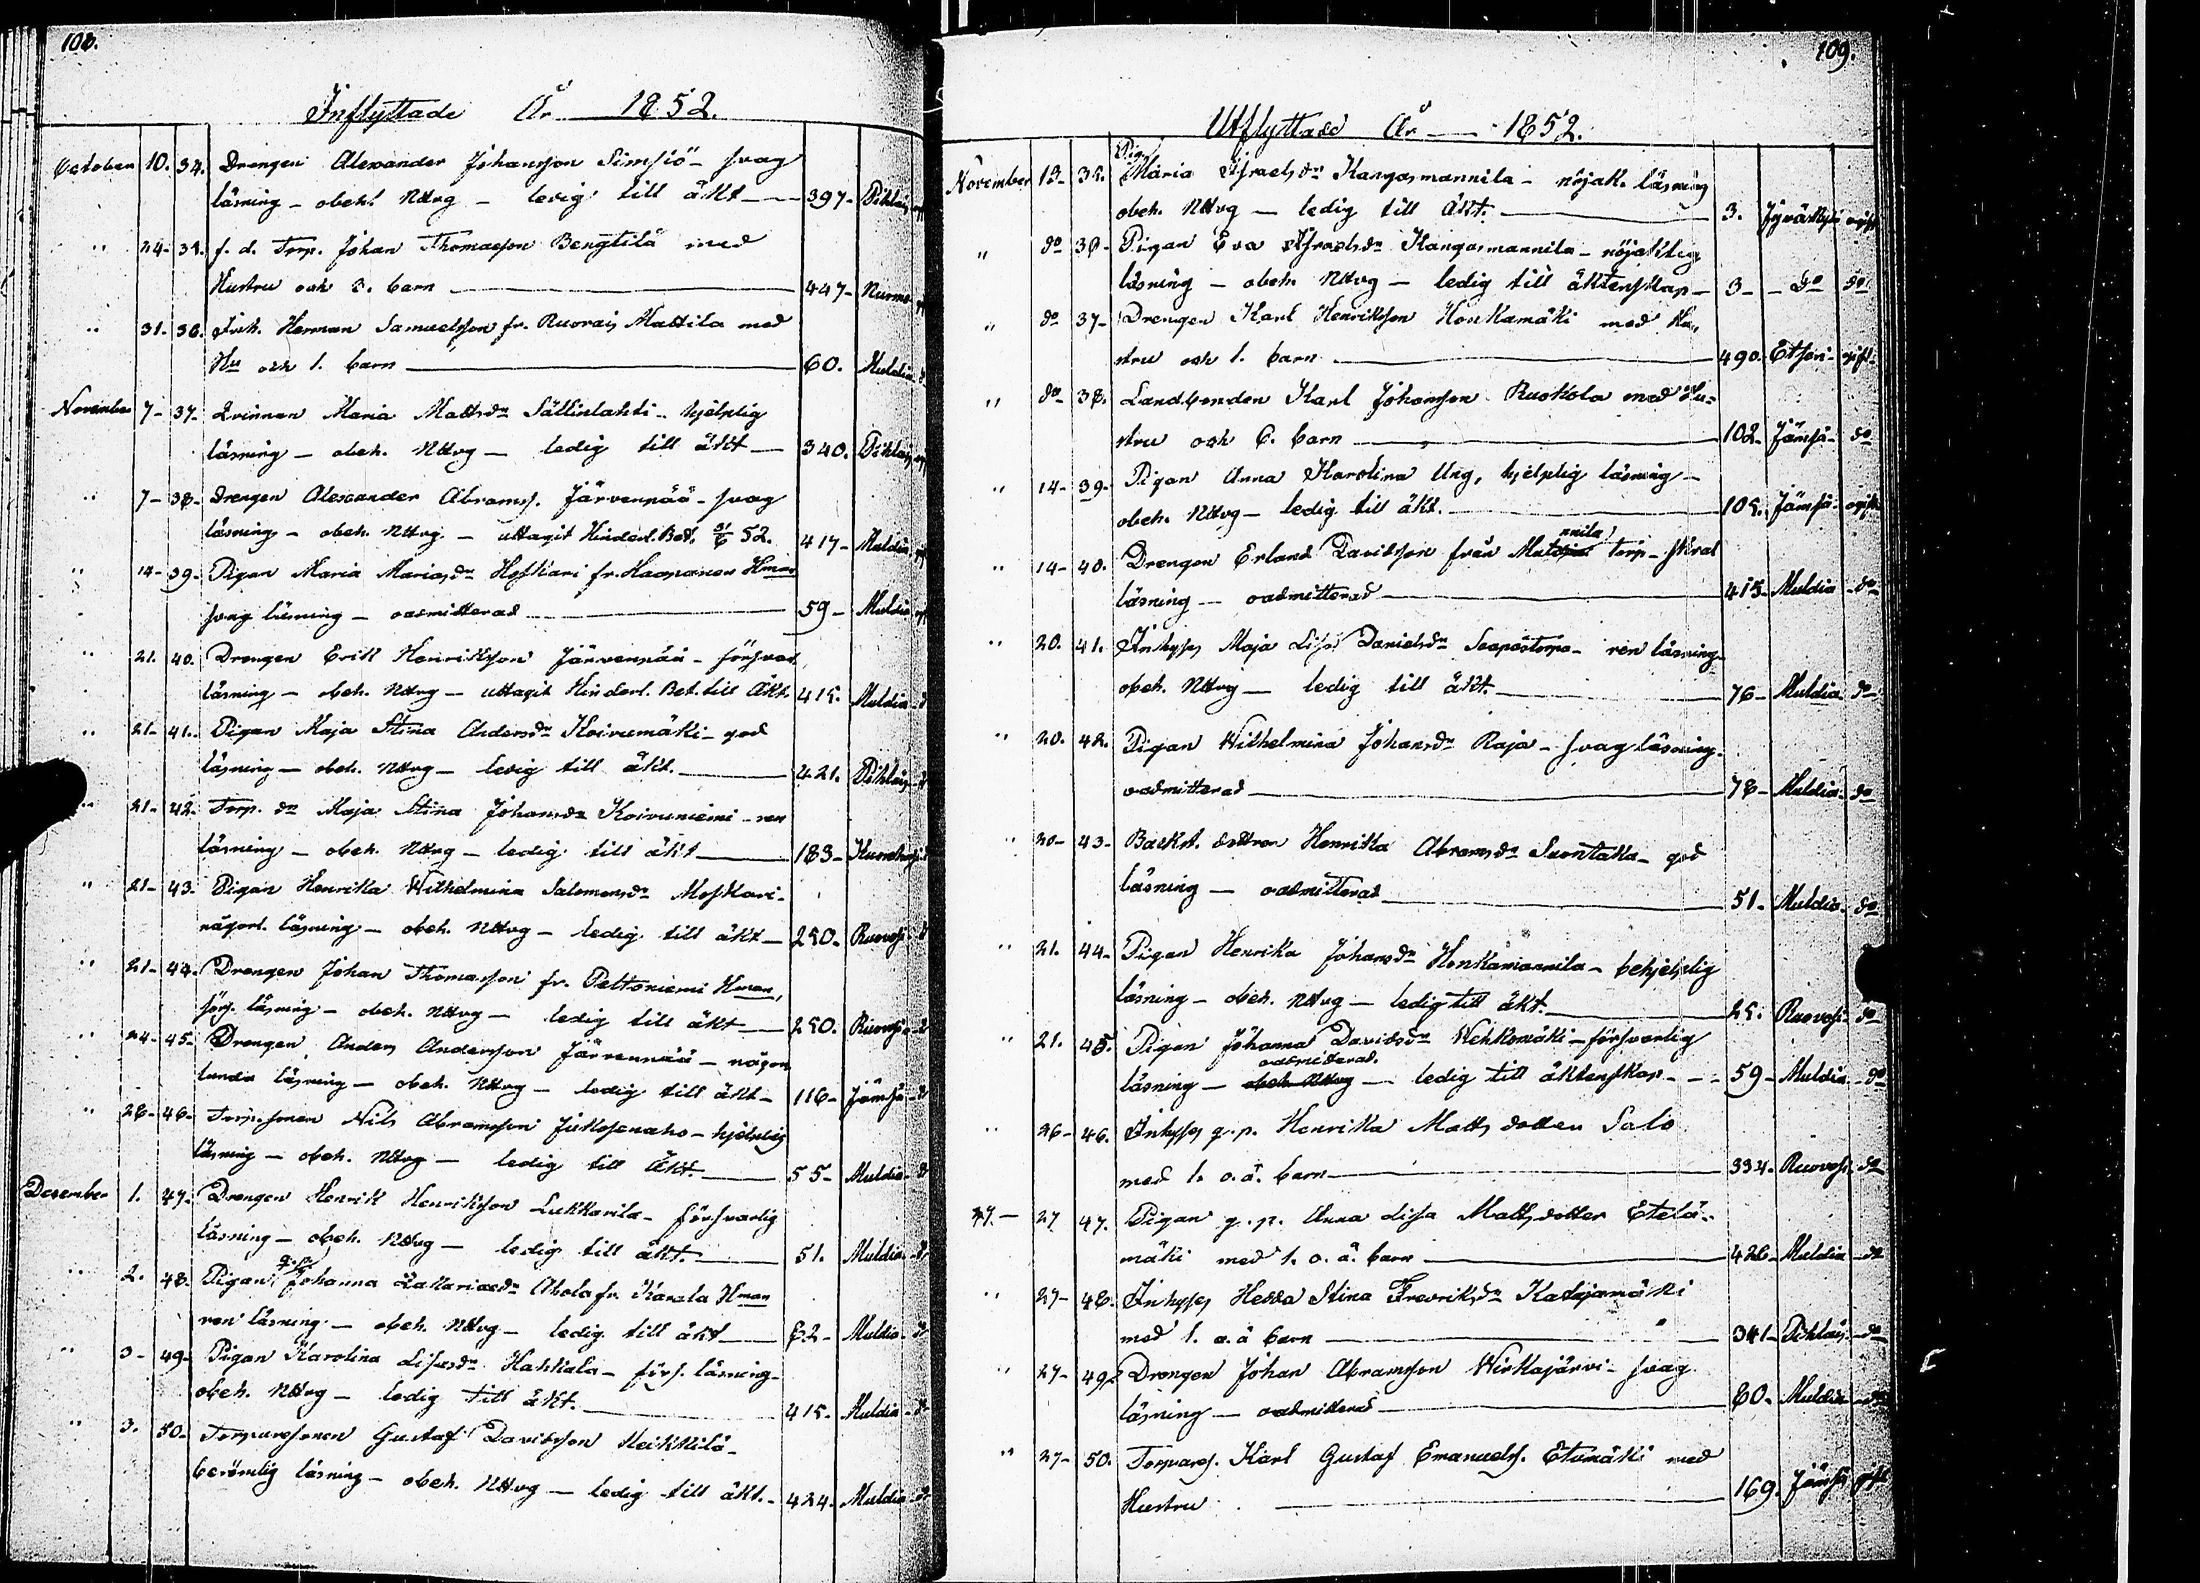 108.
Inflyttade År 1852.
October 10. 34. Drengen Alexander Johansson Simsiö - svag
läsning - obeh. Nttvg - ledig till äkt - 397 - Pihlaj
" 24 - 35. f. d. Torp. Johan Thomasson Bengtilä med
Hustru och 3. barn 447 -
" 31. 36. Inh. Herman Samuelsson fr. Ruovesi Mattila med
Hu och 1. barn 60. Muldia
November 7 - 37. Qvinnan Maria Mattsdr Sällinlahti - hjelplig
läsning - obeh. Nttvg - ledig till äkt 340. Pihlaj
" 7 - 38 - Drengen Alexander Abramss. Järvenpää - svag
läsning - obeh. Nttvg - uttagit Hinderl. Bet. 52. 417 - Muldia
" 14 - 39 - Pigan Maria Mariasdr Hoskari fr. Haapanen Hman
svag läsning - oadmitterad 59 - Muldia
" 21. 40. Drengen Erik Henriksson Järvenpää - försvarl.
läsning - obeh. Nttvg - uttagit Hinderl. Bet. till Äkt. 415. Muldia
" 21 - 41. Pigan Maja Stina Andersdr Koivumäki - god
läsning - obeh. Nttvg - ledig till äkt. 421. Pihlaj
" 21 - 42. Torp. dr Maja Stina Johansdr Koivuniemi - ren
läsning - obeh. Nttvg - ledig till äkt 183 -
" 21 - 43. Pigan Henrika Wilhelmina Salomonsdr Moskari -
någorl. läsning - obeh. Nttvg - ledig till äkt - 250. Ruovesi
" 21 - 44. Drengen Johan Thomasson fr. Peltoniemi Hman,
förs. läsning - obeh. Nttvg - ledig till äkt 250. Ruovesi
" 24 - 45. Drengen Anders Andersson Järvenpää - någor
lunda läsning - obeh. Nttvg - ledig till äkt - 116 - Jämsä
" 28 - 46 - Torp. sonen Nils Abramsson Juksenaho - hjelplig
läsning - obeh. Nttvg - ledig till Äkt. 55 - Muldia
December 1. 47. Drengen Henrik Henriksson Lukkarila - försvarlig
läsning - obeh. Nttvg - ledig till äkt. 51. Muldia
" 2. 48. Pigan q.p. Johanna Zakariasdr Ahola fr. Karala Hman
ren läsning - obeh. Nttvg - ledig till äkt 62 - Muldia
" 3 - 49 - Pigan Karolina Lisasdr Hakkala - förs. läsning -
obeh. Nttvg - ledig till äkt. 415 - Muldia
" 3. 50 - Torparesonen Gustaf Davidsson Heikkilä -
berömlig läsning - obeh. Nttvg - ledig till äkt. - 424 - Muldia
109.
Utflyttade År 1852.
November 13 - 35. Pig. Maria Israelsdr Kangasmannila - nöjakt. läsning
obeh. Nttvg - ledig till Äkt. 3. Jyväskylä ogift
" do 36 - Pigan Eva Israelsdr Kangasmannila - nöjaktig
läsning - obeh. Nttvg - ledig till äktenskap - 3 - do do
" do 37 - Drengen Karl Henriksson Honkamäki med Hu,,
stru och 1. barn 490. Etseri - gift
" do 38. Landbonden Karl Johansson Ruokola med Hu=
stru och 6. barn 102. Jämsä - do
" 14 - 39 - Pigan Anna Karolina Ung, hjelplig läsning -
obeh. Nttvg - ledig till äkt. 105. Jämsä - ogift
" 14 - 40. Drengen Erland Davidsson från nnila torp - skral
läsning - oadmitterad 415 - Muldia - do
" 20. 41. Inhyses Maja Lisa Danielsdr Seapästorpa - ren läsning -
obeh. Nttvg - ledig till äkt. 76 - Muldia do
" 20. 42. Pigan Wilhelmina Johansdr Raja - svag läsning.
oadmitterad 78 - Muldia - do
" 20 - 43 - Backst. dottren Henrika Abramsdr Suontaka - god
läsning - oadmitterad 51 - Muldia - do
" 21. 44 - Pigan Henrika Johansdr Honkamannila - behjelplig
läsning - obeh. Nttvg - ledig till äkt. 25. Ruovesi - do
" 21. 45. Pigan Johanna Davidsdr Wehkomäki - försvarlig
oadmitterad.
läsning - obeh. Nttvg - ledig till äktenskap - - 59 - Muldia - do
" 26 - 46. Inhyses q.p. Henrika Matts dotter Salo
med 1. o.ä. barn 334 - Ruovesi do
27 47. Pigan q.p. Anna Lisa Mattsdotter Etelä-
mäki med 1. o.ä. barn 426 - Muldia - do
" 27 - 48. Inhyses Hedda Stina Fredriksdr Katajamäki
med 1. o.ä barn 341 - Pihlaj. - do
" 27 - 49. Drengen Johan Abramsson Wirkajärvi - svag
läsning - oadmitterad 60 - Muldia - do
" 27 - 50. Torpares. Karl Gustaf Emanuelss. Etumäki med
Hustru 169. Jämsä gift